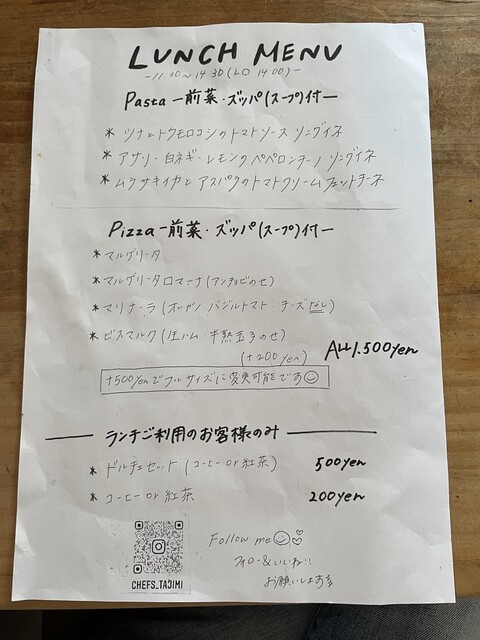 LUNCH MENU
-11:30～14:30(LO 14:00)-
Pasta ー前菜・ズッパ(スープ)付ー
* ツナとトウモロコシのトマトソース リングイネ
* アサリ・白ネギ・レモンのペペロンチーノ リングイネ
* ムラサキイカとアスパラのトマトクリーム フェットチーネ
Pizza ー前菜・ズッパ(スープ)付ー
* マルゲリータ
* マルゲリータロマーナ(アンチョビのせ)
* マリナーラ(オレガノ バジルトマト・チーズなし)
* ビスマルク(生ハム・半熟玉子のせ)
(+200yen)
ALL 1.500yen
+500yenでフルサイズに変更可能です
ランチご利用のお客様のみ
* ドルチェセット(コーヒー or 紅茶) 500yen
* コーヒー or 紅茶 200yen
Follow me
フォロー&いいね!!
お願いします
CHEFS_TAJIMI